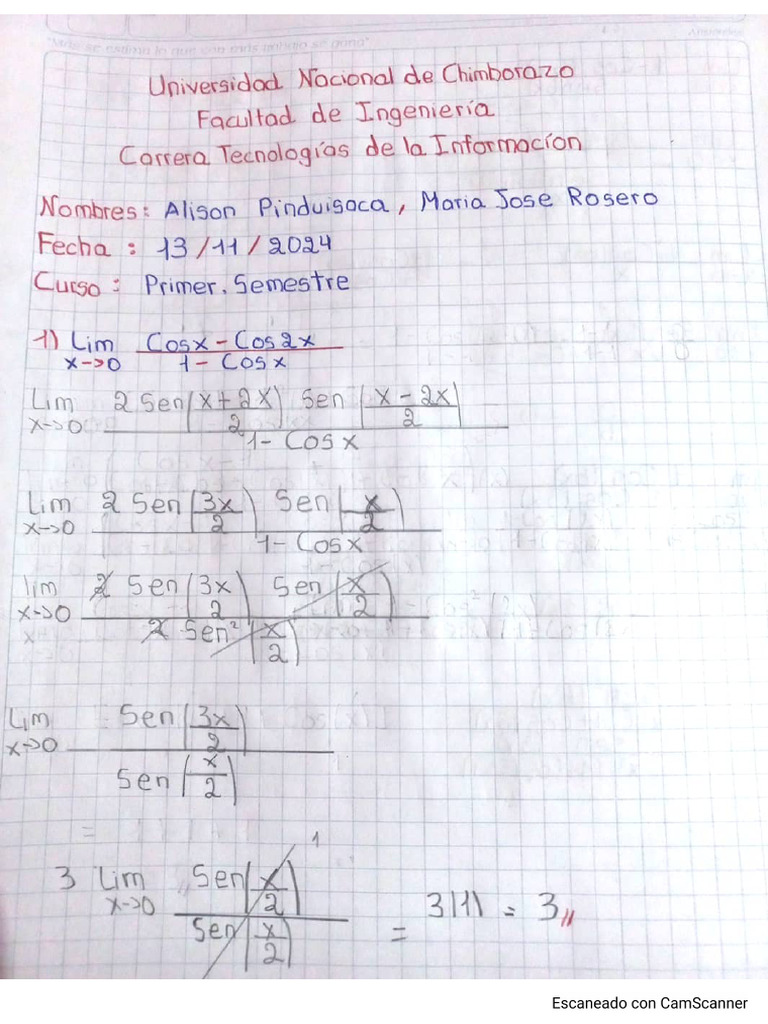 "Vida se estima lo que con más trabajo se gana"
Universidad Nacional de Chimborazo
Facultad de Ingeniería
Carrera Tecnologías de la Información
Nombres: Alison Pinduisaca, Maria Jose Rosero
Fecha : 13/11/2024
Curso: Primer. Semestre
1) Lim x->0 (Cosx - Cos2x) / (1 - Cosx)
Lim x->0 2 Sen((x+2x)/2) Sen((x-2x)/2) / (1 - Cosx)
Lim x->0 2 Sen(3x/2) Sen(x/2) / (1 - Cosx)
lim x->0 2 Sen(3x/2) Sen(x/2) / 2 Sen²(x/2)
x
Lim x->0 Sen(3x/2) / Sen(x/2)
=
3 Lim x->0 Sen(x/2) / Sen(x/2) 1 = 3(1) = 3,,
Escaneado con CamScanner